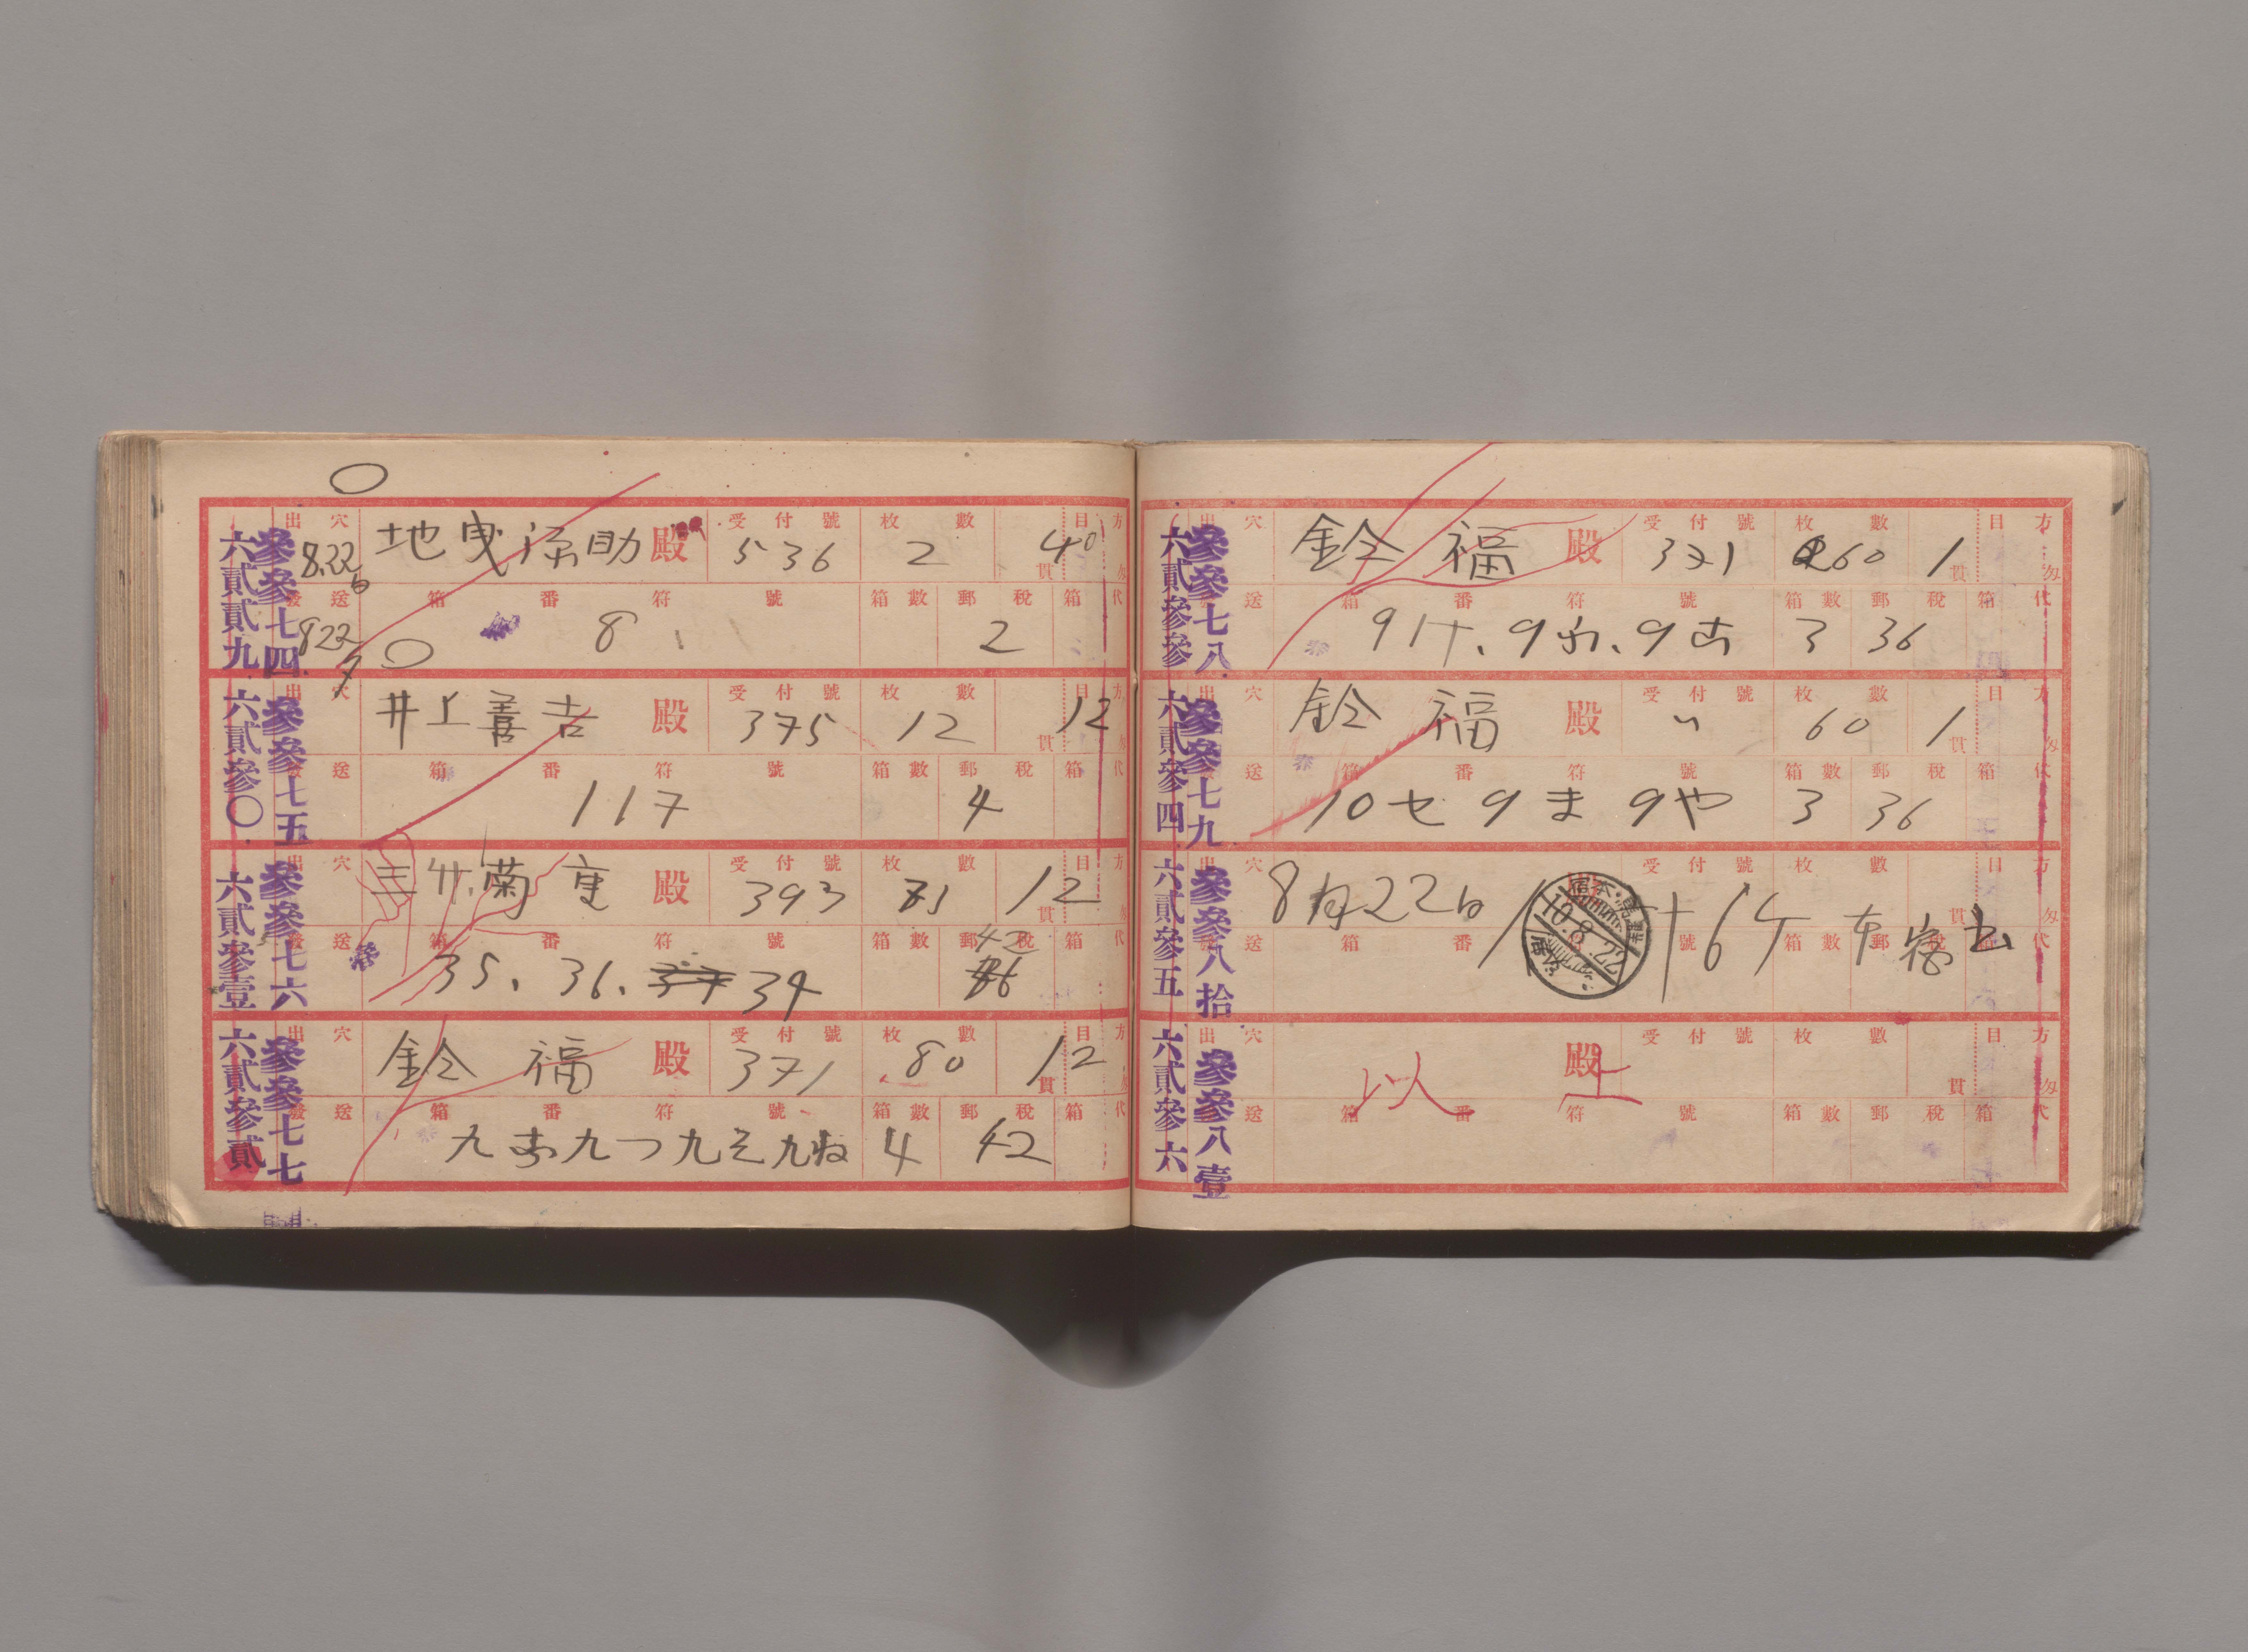 六貳貳九 參參七四
出穴 地曳 助 殿 受付號 枚數 貫 目 方匁
8.22 536 2 40
發送 箱番符號 箱數 郵稅 箱代
822 8 2
六貳參〇 參參七五
出穴 井上善吉 殿 受付號 枚數 貫 目 方匁
375 12 12
發送 箱番符號 箱數 郵稅 箱代
117 4
六貳參壹 參參七六
出穴 菊重 殿 受付號 枚數 貫 目 方匁
393 12
發送 箱番符號 箱數 郵稅 箱代
35、36、37 34 42
六貳參貳 參參七七
出穴 鈴福 殿 受付號 枚數 貫 目 方匁
371 80 12
發送 箱番符號 箱數 郵稅 箱代
九 九つ九そ九ね 4 42
六貳參參 參參七八
出穴 鈴福 殿 受付號 枚數 貫 目 方匁
371 60 1
發送 箱番符號 箱數 郵稅 箱代
9け、9 、9 3 36
六貳參四 參參七九
出穴 鈴福 殿 受付號 枚數 貫 目 方匁
〃 60 1
發送 箱番符號 箱數 郵稅 箱代
10セ 9ま 9や 3 36
六貳參五 參參八拾
出穴 殿 受付號 枚數 貫 目 方匁
8月22日
10.8.22
發送 箱番符號 箱數 郵稅 箱代
六貳參六 參參八壹
出穴 殿 受付號 枚數 貫 目 方匁
以上
發送 箱番符號 箱數 郵稅 箱代